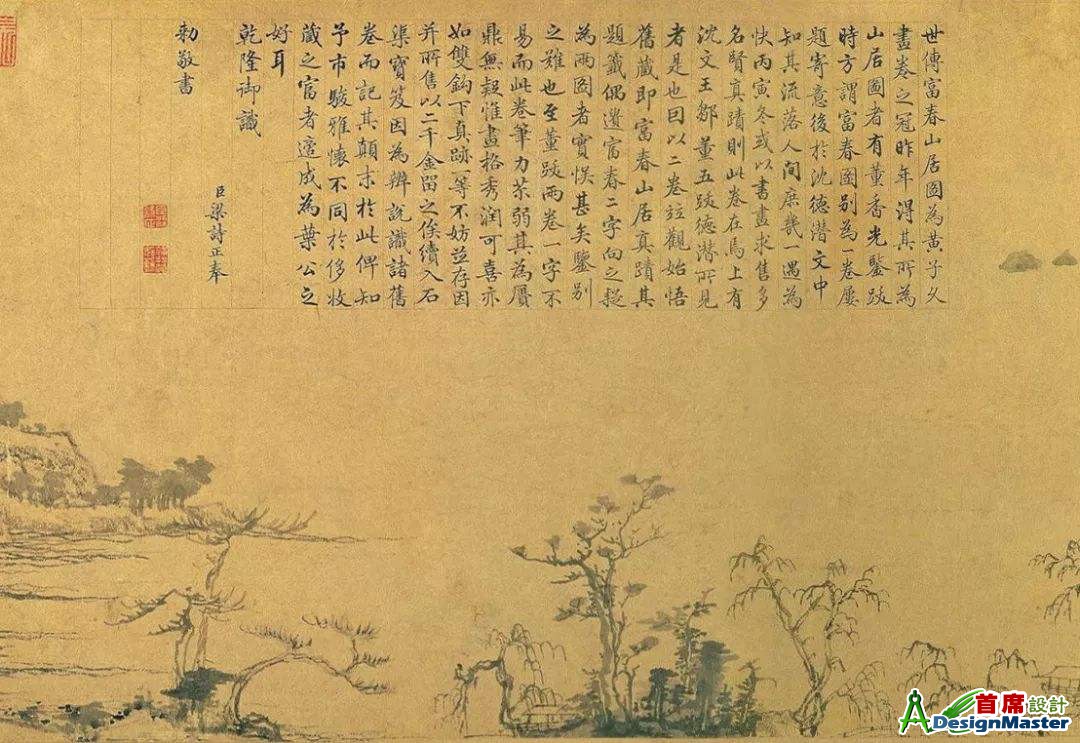 世傳富春山居圖為黃子久
畫卷之冠昨年得其所為
山居圖者有董香光鑒跋
時方謂富春圖別為一卷屢
題寄意後於沈德潛文中
知其流落人間庶幾一遇為
快丙寅冬或以書畫求售多
名賢真蹟則此卷在焉上有
沈文王鄒董五跋德潛所見
者是也因以二卷竝觀始悟
舊藏即富春山居真蹟其
題籤偶遺富春二字向之疑
為兩圖者實悞甚矣鑒別
之難也至董跋兩卷一字不
易而此卷筆力苶弱其為贗
鼎無疑惟畫格秀潤可喜亦
如雙鈎下真跡一等不妨並存因
并所售以二千金留之俟續入石
渠寶笈因為辨說識諸舊
卷而記其顛末於此俾知
予市駿雅懷不同於侈收
藏之富者適成為葉公之
好耳
乾隆御識
臣梁詩正奉
勅敬書
首席設計
DesignMaster